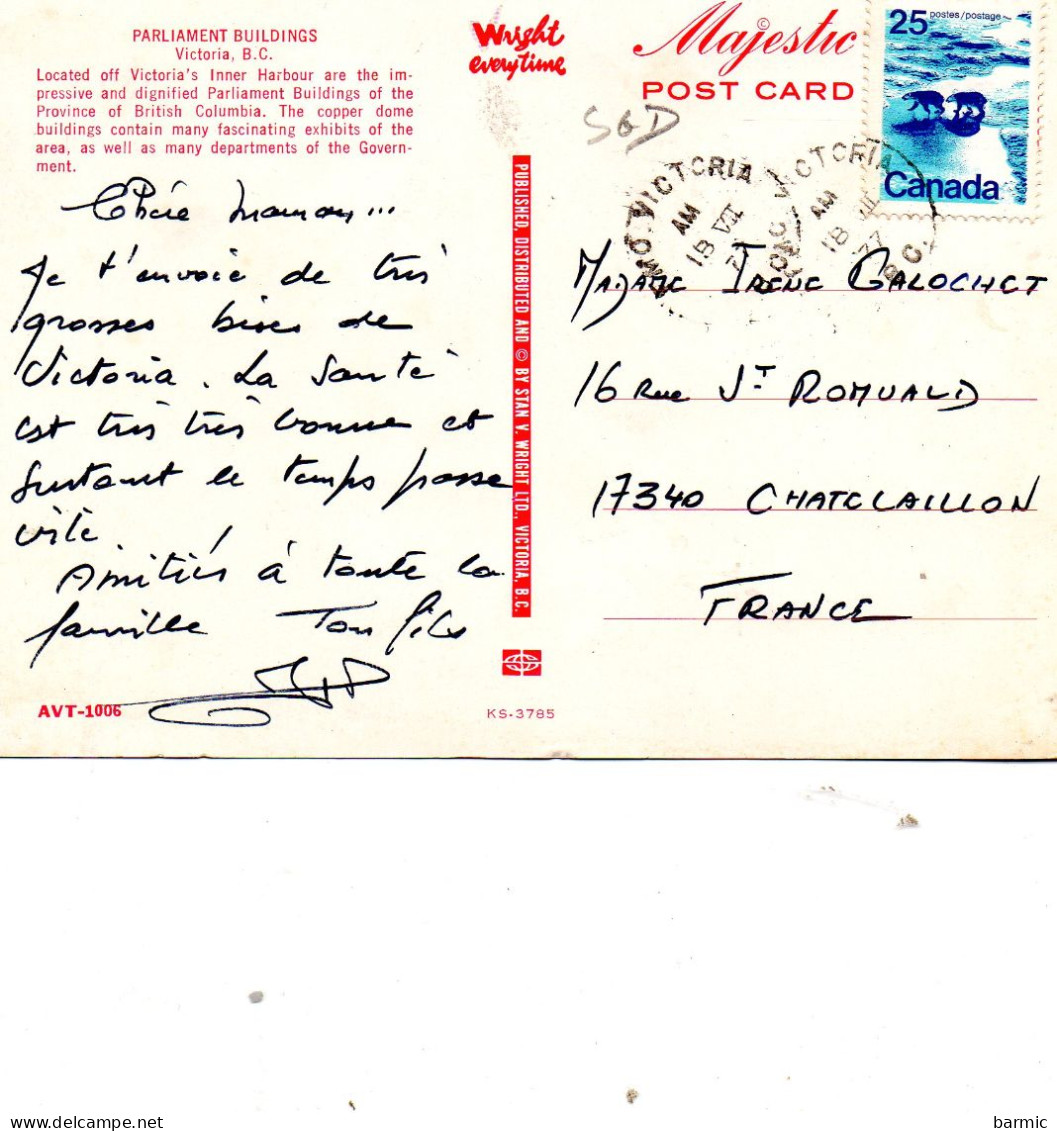 PARLIAMENT BUILDINGS
Victoria, B.C.
Located off Victoria's Inner Harbour are the im-
pressive and dignified Parliament Buildings of the
Province of British Columbia. The copper dome
buildings contain many fascinating exhibits of the
area, as well as many departments of the Govern-
ment.
Wright
everytime
Majestic
©
POST CARD
25 postes/postage
Canada
SGD
VICTORIA
AM
18 VII
VICTORIA
AM
18
77
B.C.
Chère Maman...
Je t'envoie de très
grosses bises de
Victoria. La santé
est très très bonne et
surtout le temps passe
vite.
Amitiés à toute la
famille Ton fils
PUBLISHED, DISTRIBUTED AND © BY STAN V. WRIGHT LTD., VICTORIA, B.C.
MADAME IRENE GALOCHET
16 Rue St ROMUALD
17340 CHATELAILLON
FRANCE
AVT-1006
KS-3785
delcampe.net
barmic